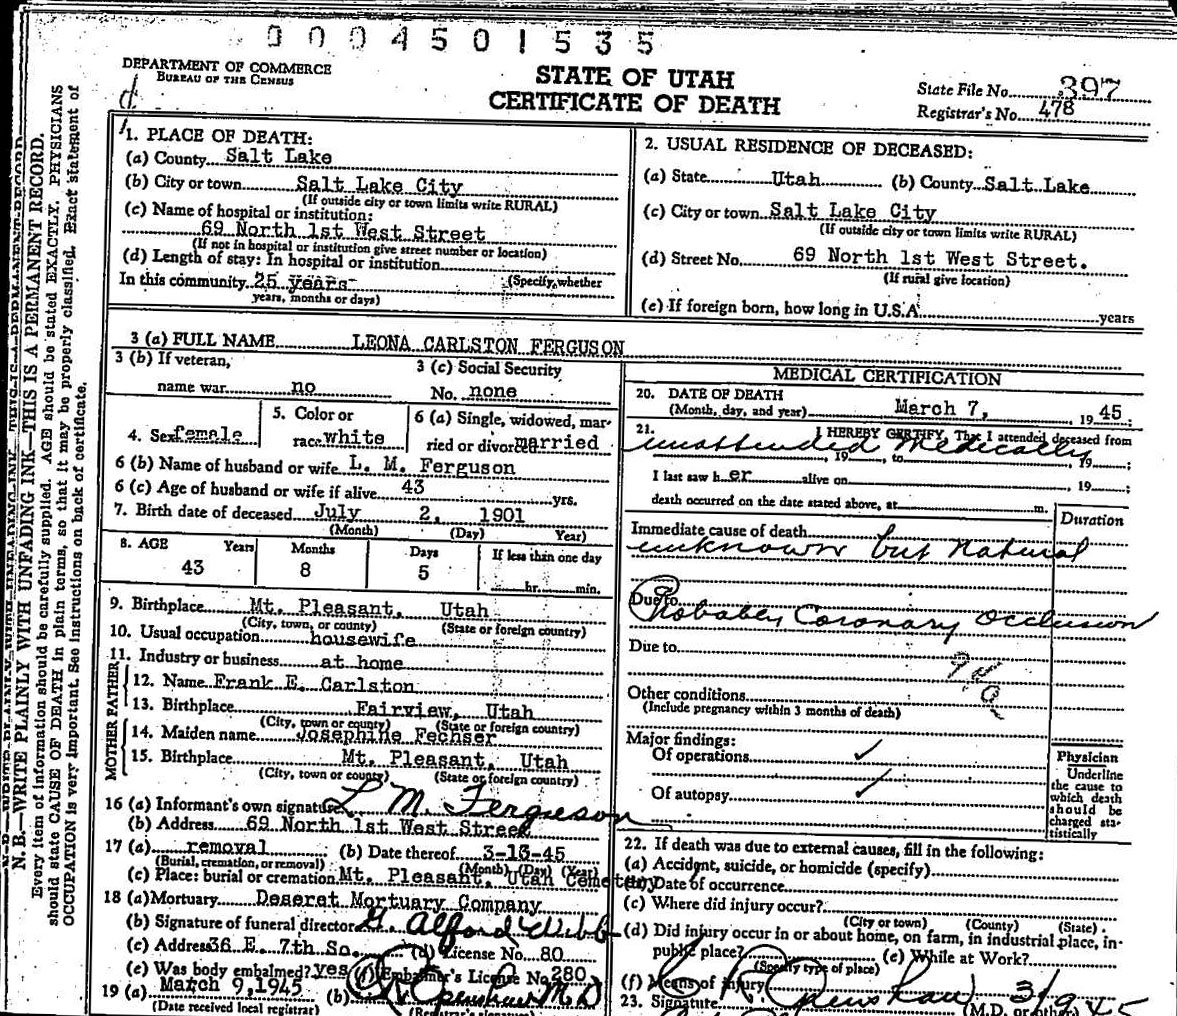 0004501535
DEPARTMENT OF COMMERCE
BUREAU OF THE CENSUS
STATE OF UTAH
CERTIFICATE OF DEATH
State File No. 397
Registrar's No. 478
N. B.—WRITE PLAINLY WITH UNFADING INK—THIS IS A PERMANENT RECORD.
Every item of information should be carefully supplied. AGE should be stated EXACTLY. PHYSICIANS
should state CAUSE OF DEATH in plain terms, so that it may be properly classified. Exact statement of
OCCUPATION is very important. See instructions on back of certificate.
1. PLACE OF DEATH:
(a) County Salt Lake
(b) City or town Salt Lake City
(If outside city or town limits write RURAL)
(c) Name of hospital or institution:
69 North 1st West Street
(If not in hospital or institution give street number or location)
(d) Length of stay: In hospital or institution
In this community 25 years (Specify whether
years, months or days)
2. USUAL RESIDENCE OF DECEASED:
(a) State Utah (b) County Salt Lake
(c) City or town Salt Lake City
(If outside city or town limits write RURAL)
(d) Street No. 69 North 1st West Street.
(If rural give location)
(e) If foreign born, how long in U.S.A. years
3 (a) FULL NAME LEONA CARLSTON FERGUSON
3 (b) If veteran,
name war no
3 (c) Social Security
No. none
4. Sex female
5. Color or
race white
6 (a) Single, widowed, mar-
ried or divorced married
6 (b) Name of husband or wife L. M. Ferguson
6 (c) Age of husband or wife if alive 43 yrs.
7. Birth date of deceased July 2, 1901
(Month) (Day) Year)
8. AGE Years Months Days If less than one day
43 8 5 hr. min.
9. Birthplace Mt. Pleasant, Utah
(City, town, or county) (State or foreign country)
10. Usual occupation housewife
11. Industry or business at home
FATHER
12. Name Frank E. Carlston
13. Birthplace Fairview, Utah
(City, town or county) (State or foreign country)
MOTHER
14. Maiden name Josephine Fechser
15. Birthplace Mt. Pleasant, Utah
(City, town or county) (State or foreign country)
16 (a) Informant's own signature L M. Ferguson
(b) Address 69 North 1st West Street
17 (a) removal (b) Date thereof 3-13-45
(Burial, cremation, or removal) (Month) (Day) (Year)
(c) Place: burial or cremation Mt. Pleasant, Utah Cemetery
18 (a) Mortuary Deserat Mortuary Company
(b) Signature of funeral director G. Alford Webb
(c) Address 36 E. 7th So. (d) License No. 80
(e) Was body embalmed? yes (f) Embalmer's License No. 280
19 (a) March 9, 1945 (b) Openshaw M.D
(Date received local registrar) (Registrar's signature)
MEDICAL CERTIFICATION
20. DATE OF DEATH
(Month, day, and year) March 7, 19 45;
21. I HEREBY CERTIFY, That I attended deceased from
unattended Medically
, 19 , to , 19 ;
I last saw h er alive on , 19 ;
death occurred on the date stated above, at m.
Duration
Immediate cause of death
unknown but natural
Due to
Probably Coronary Occlusion
Due to
94a
Other conditions
(Include pregnancy within 3 months of death)
Major findings:
Of operations
Of autopsy
Physician
Underline
the cause to
which death
should be
charged sta-
tistically
22. If death was due to external causes, fill in the following:
(a) Accident, suicide, or homicide (specify)
(b) Date of occurrence
(c) Where did injury occur?
(City or town) (County) (State)
(d) Did injury occur in or about home, on farm, in industrial place, in-
public place? (e) While at Work?
(Specify type of place)
(f) Means of injury
23. Signature Openshaw 3/9 45
(M.D. or other)